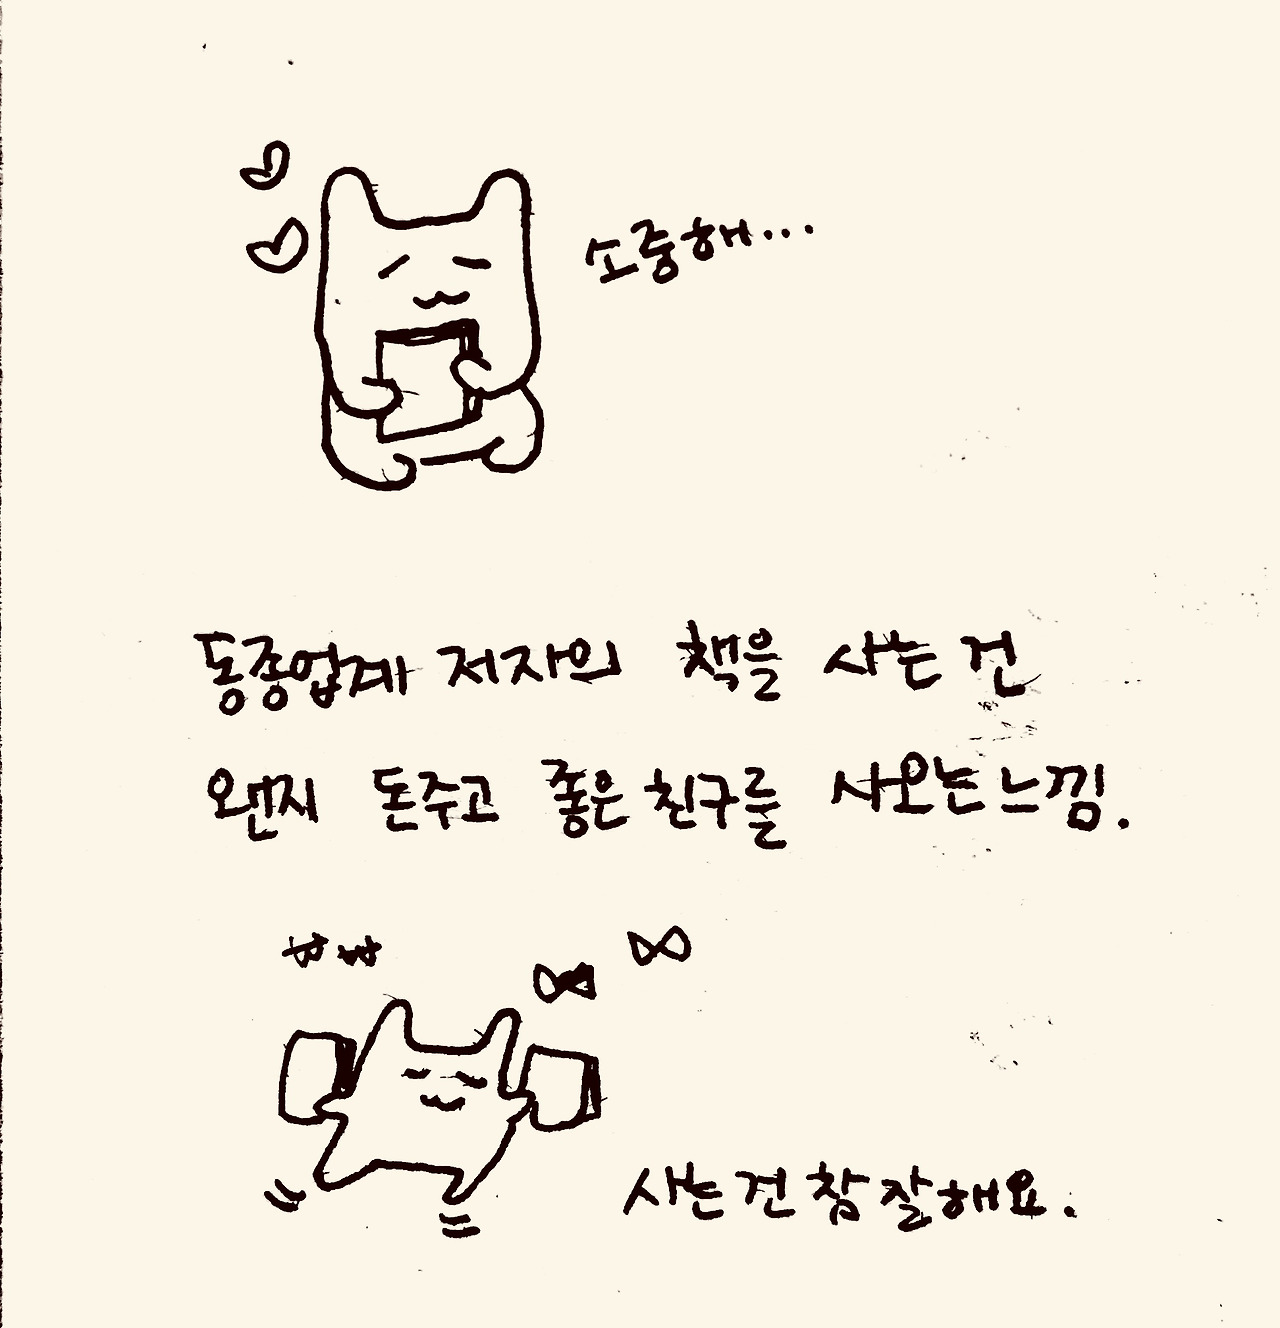 소중해...
동종업계 저자의 책을 사는 건
왠지 돈주고 좋은 친구를 사오는 느낌.
사는 건 참 잘해요.